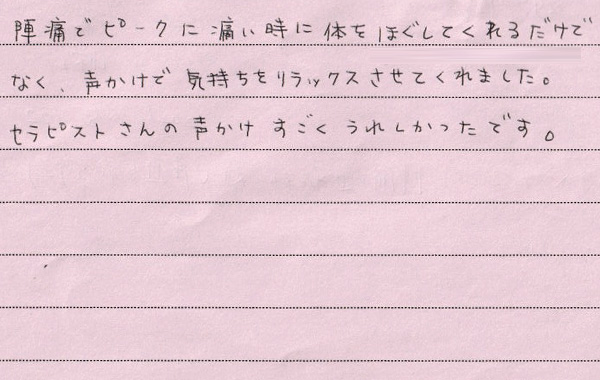 陣痛でピークに痛い時に体をほぐしてくれるだけで
なく、声かけで気持ちをリラックスさせてくれました。
セラピストさんの声かけすごくうれしかったです。